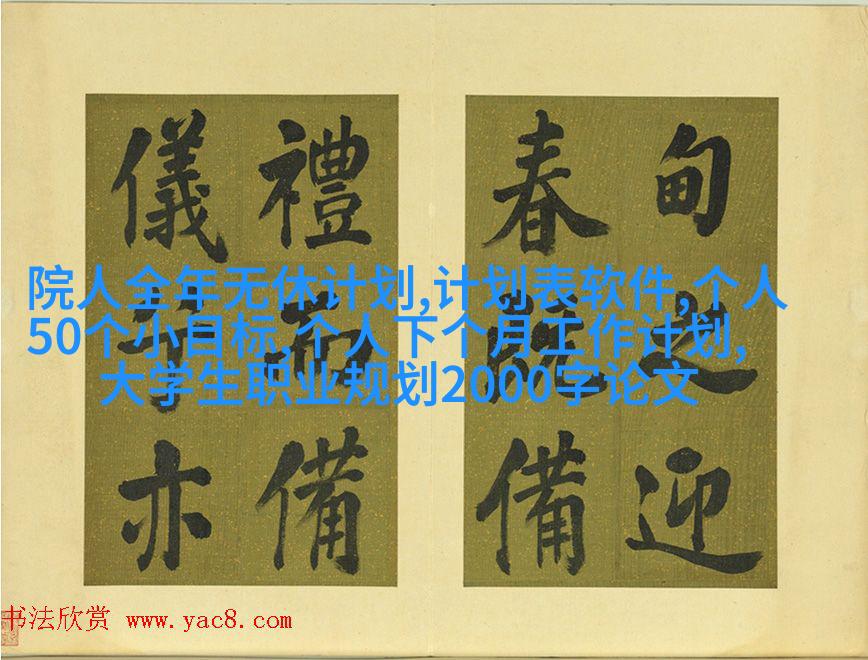 甸之迎
春既備
禮而備
儀亦
院人全年无休计划,计划表软件,个人
50个小目标,个人下个月工作计划,
大学生职业规划2000字论文
书法欣赏 www.yac8.com